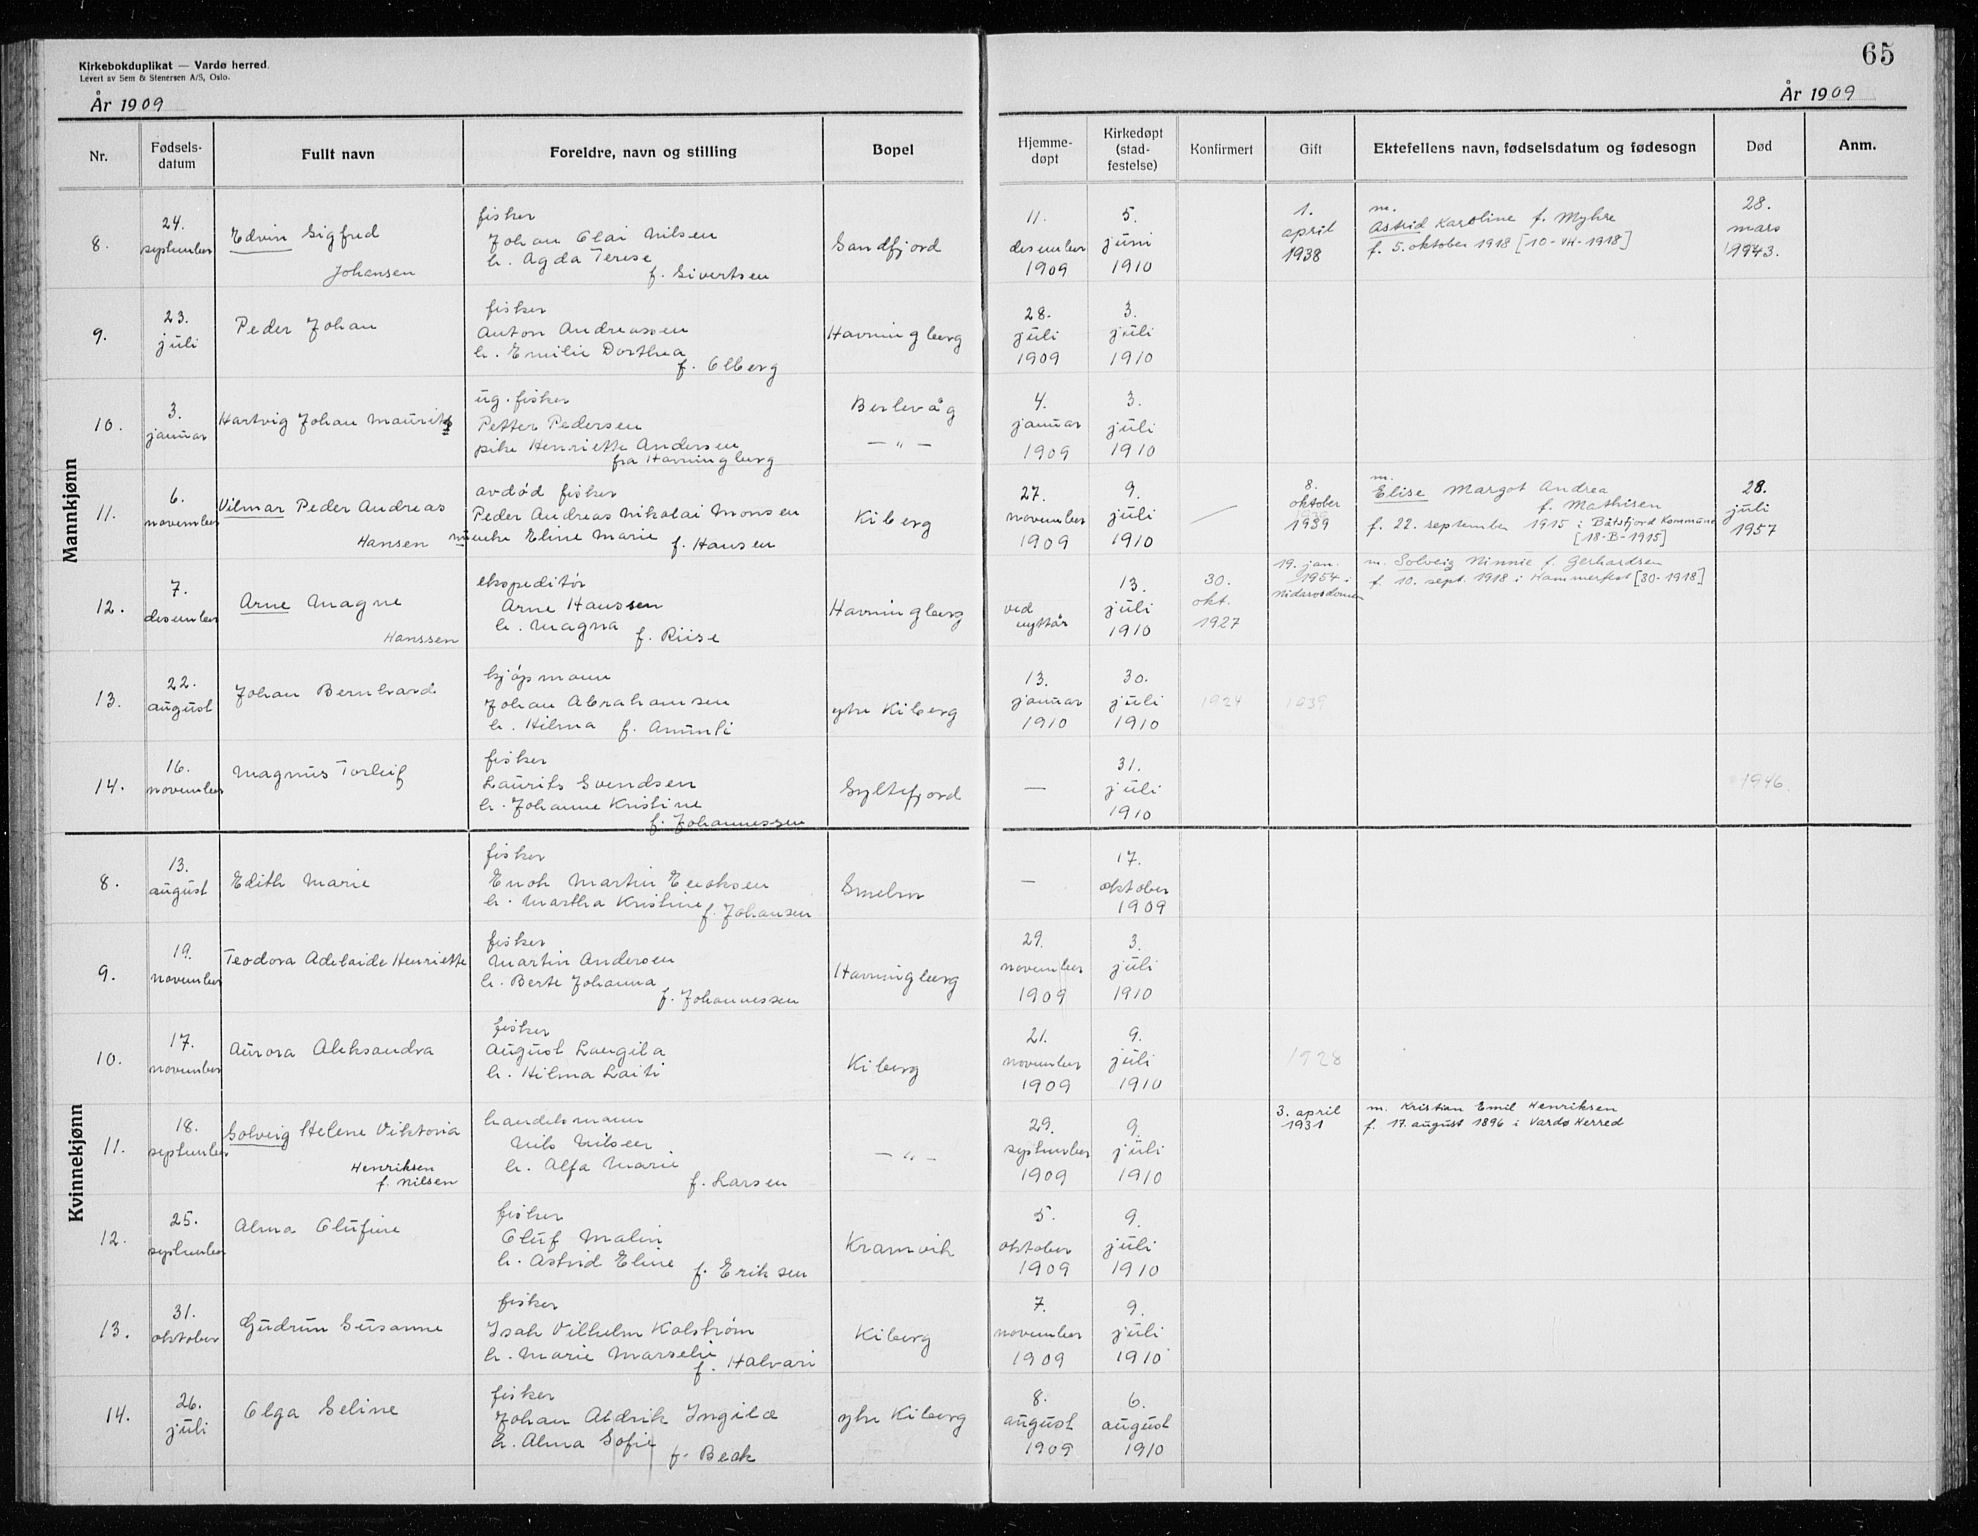 Kirkebokduplikat — Vardø herred.
Levert av Sem & Stenersen A/S, Oslo.
År 1909
65
År 1909
Nr. Fødsels-datum Fullt navn Foreldre, navn og stilling Bopel Hjemme-døpt Kirkedøpt (stad-festelse) Konfirmert Gift Ektefellens navn, fødselsdatum og fødesogn Død Anm.
Mannkjønn
8.
24.
september
Edvin Sigfred
Johansen
fisker
Johan Olai Nilsen
h. Agda Terese
f. Sivertsen
Sandfjord
11.
desember
1909
5.
juni
1910
1.
april
1938
m.
Astrid Karoline f. Myhre
f. 5. oktober 1918 [10-VH-1918]
28.
mars
1943.
9.
23.
juli
Peder Johan
fisker
Anton Andreassen
h. Emilie Dorthea
f. Olberg
Havningberg
28.
juli
1909
3.
juli
1910
10.
3.
januar
Hartvig Johan Maurits
ug. fisker
Petter Pedersen
pike Henriette Andersen
fra Havningberg
Berlevåg
— " —
4.
januar
1909
3.
juli
1910
11.
6.
november
Vilmar Peder Andreas
Hansen
avdød fisker
Peder Andreas Nikolai Monsen
enke Eline Marie f. Hansen
Kiberg
27.
november
1909
9.
juli
1910
—
8.
oktober
1939
m.
Elise Margot Andrea
f. Mathisen
f. 22. september 1915 i Båtsfjord Kommune
[18-B-1915]
28.
juli
1957
12.
7.
desember
Arne Magne
Hanssen
ekspeditør
Arne Hanssen
h. Magna f. Riise
Havningberg
ved
nyttår
13.
juli
1910
30.
okt.
1927
19. jan.
1954 i
Nidarosdomen
m. Solveig Ninnie f. Gerhardsen
f. 10. sept. 1918 i Hammerfest [30-1918]
13.
22.
august
Johan Bernhard
kjøpmann
Johan Abrahamsen
h. Hilma f. Anunti
ytre Kiberg
13.
januar
1910
30.
juli
1910
1924
1939
14.
16.
november
Magnus Torleif
fisker
Laurits Svendsen
h. Johanne Kristine
f. Johannessen
Syltefjord
—
31.
juli
1910
1946.
Kvinnekjønn
8.
13.
august
Edith Marie
fisker
Enok Martin Enoksen
h. Martha Kristine
f. Johansen
Smelror
—
17.
oktober
1909
9.
19.
november
Teodora Adelaide Henriette
fisker
Martin Andersen
h. Berte Johanna
f. Johannessen
Havningberg
29.
november
1909
3.
juli
1910
10.
17.
november
Aurora Aleksandra
fisker
August Langila
h. Hilma Laiti
Kiberg
21.
november
1909
9.
juli
1910
1928
11.
18.
september
Solveig Helene Viktoria
Henriksen
f. Nilsen
handelsmann
Nils Nilsen
h. Alfa Marie
f. Larsen
— " —
29.
september
1909
9.
juli
1910
3. april
1931
m. Kristian Emil Henriksen
f. 17. august 1896 i Vardø Herred
12.
25.
september
Alma Olufine
fisker
Oluf Malin
h. Astrid Eline
f. Eriksen
Kramvik
5.
oktober
1909
9.
juli
1910
13.
31.
oktober
Gudrun Susanne
fisker
Isak Vilhelm Kolstrøm
h. Marie Marselie
f. Halvari
Kiberg
7.
november
1909
9.
juli
1910
14.
26.
juli
Olga Seline
fisker
Johan Abdrik Ingilæ
h. Alma Sofie
f. Beck
ytre Kiberg
8.
august
1909
6.
august
1910